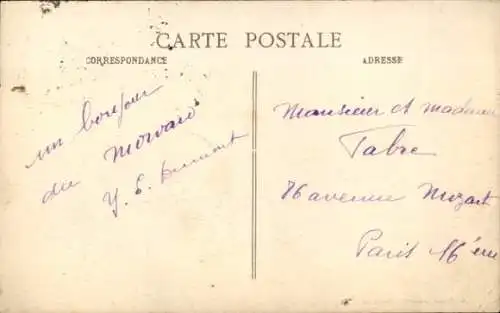 CARTE POSTALE
CORRESPONDANCE
ADRESSE
un bonjour
du Morvan
Y. E. Dumont
Monsieur et madame
Fabre
86 avenue Mozart
Paris 16ème